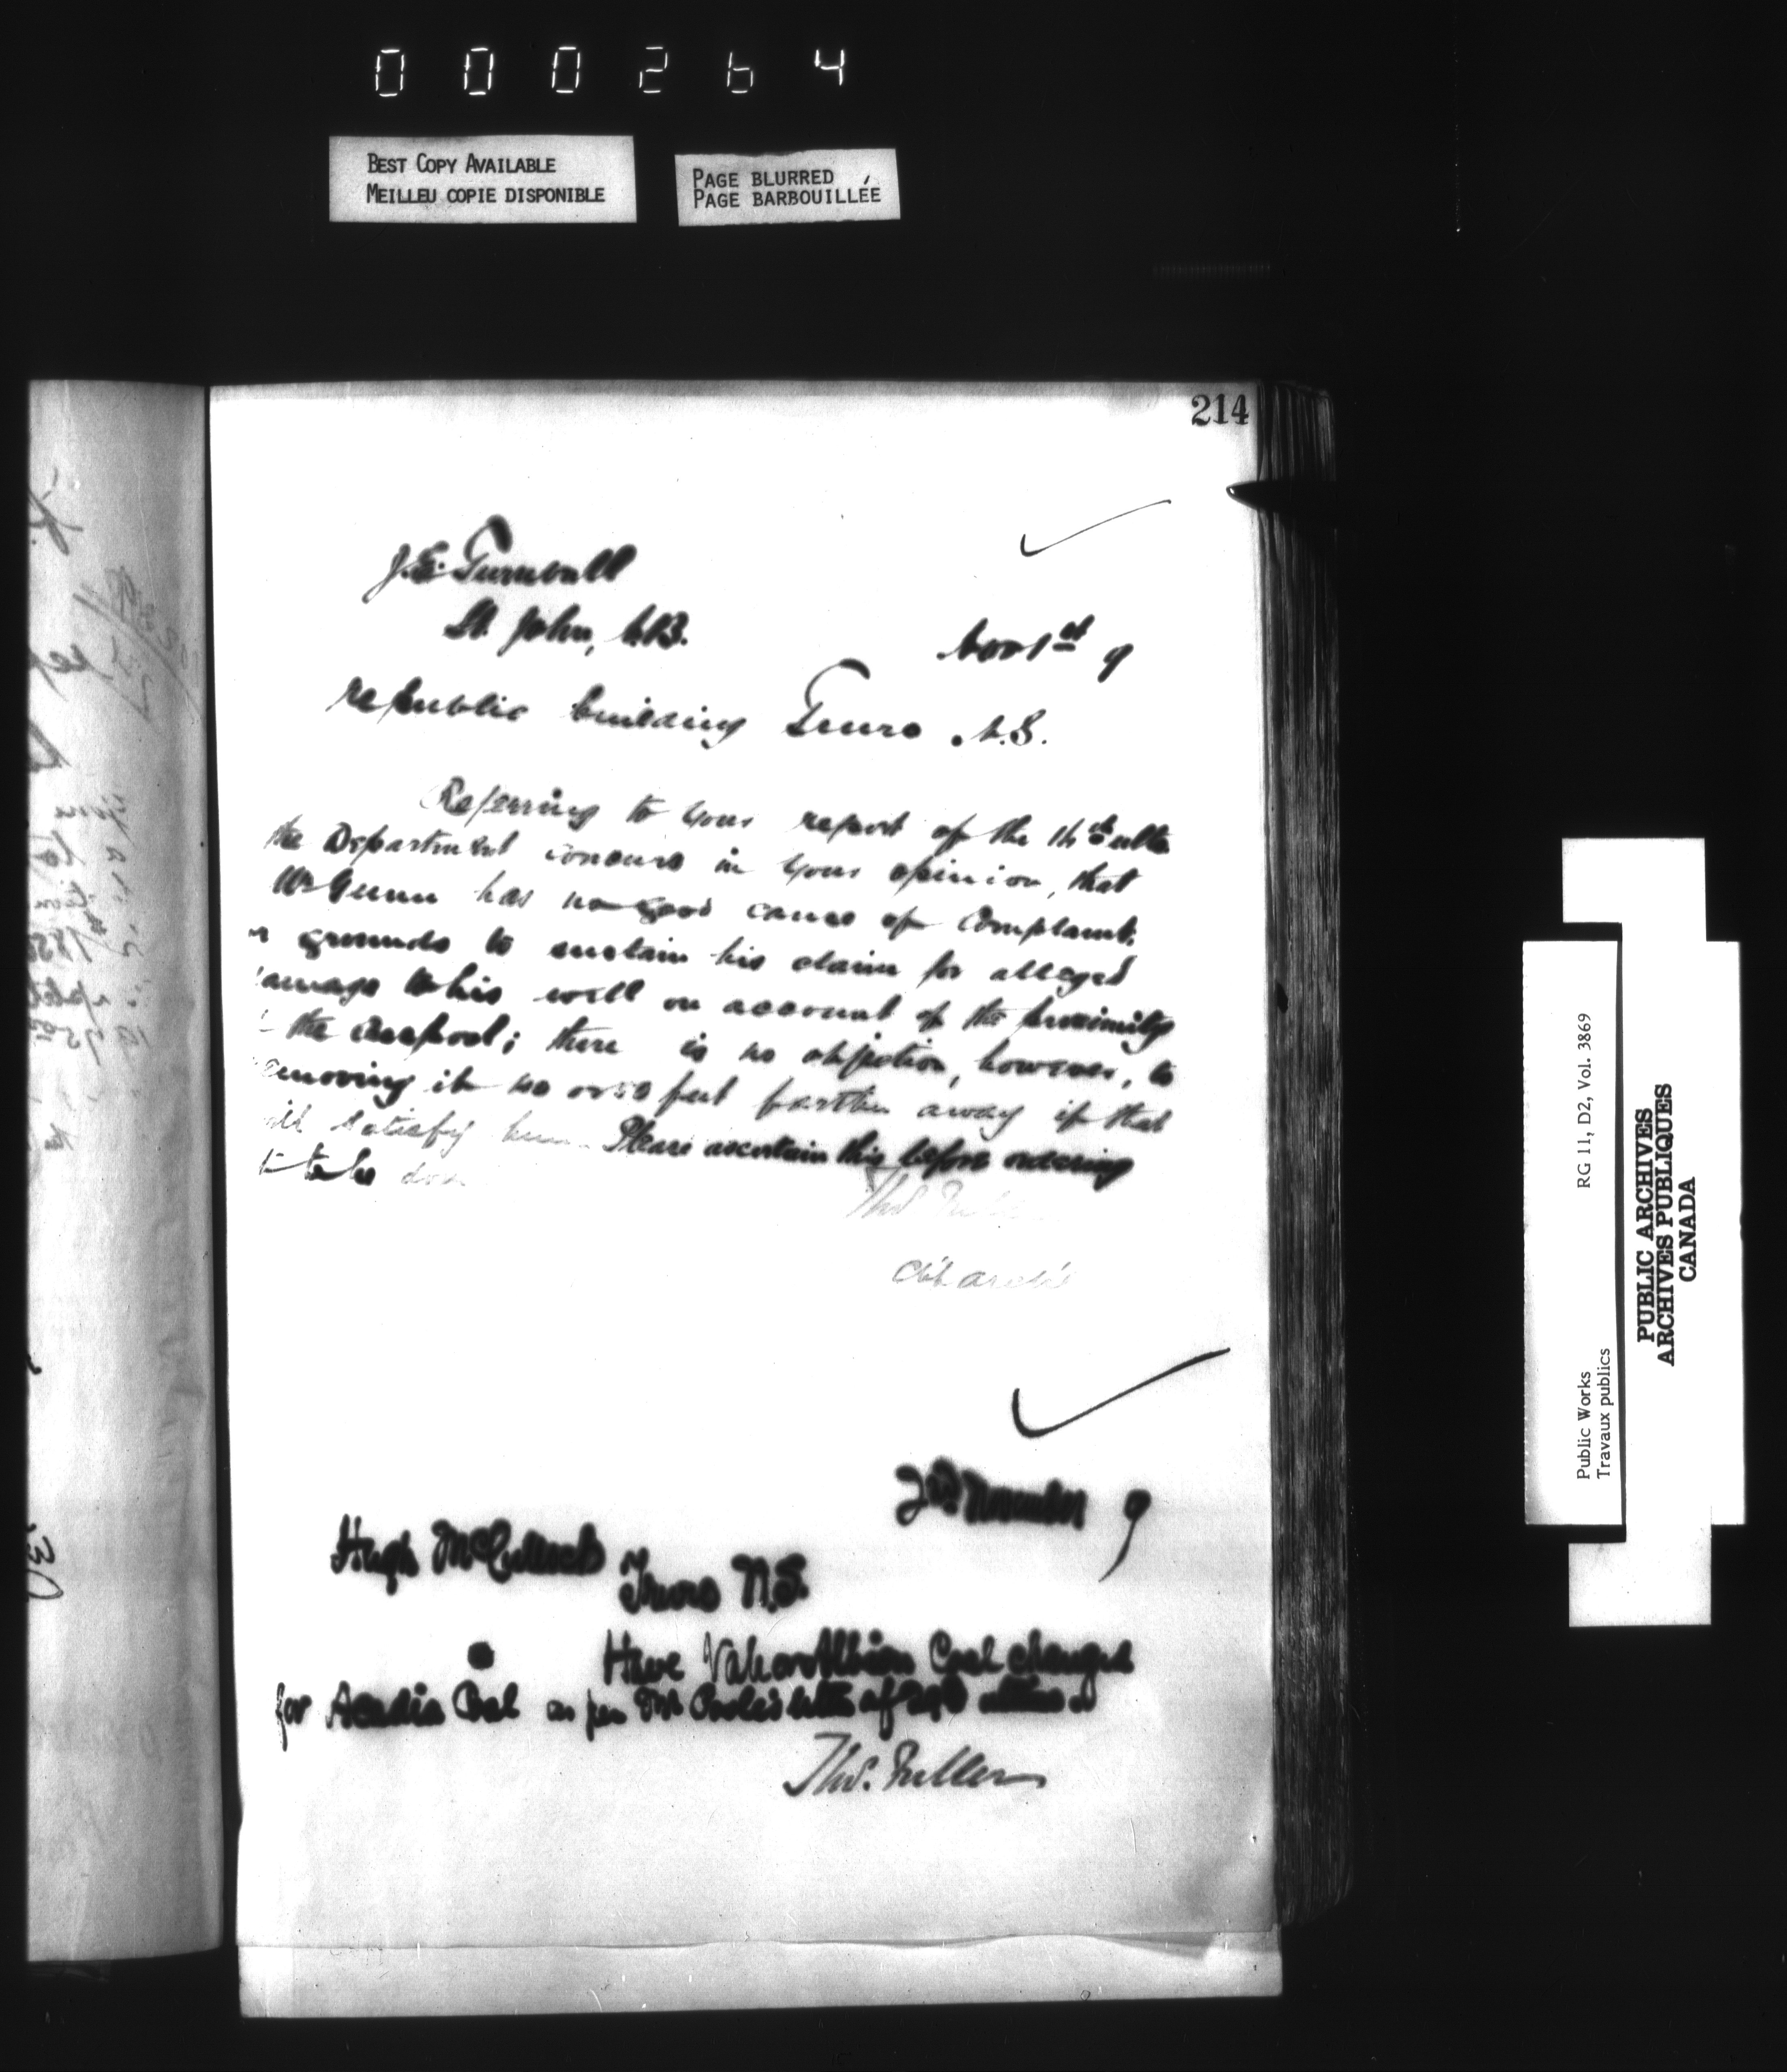 000264
BEST COPY AVAILABLE
MEILLEU COPIE DISPONIBLE
PAGE BLURRED
PAGE BARBOUILLÉE
214
J.E. Turnbull
St. John, N.B.
Nov 1st 9
re public building Truro N.S.
Referring to your report of the 14th ulto
the Department concurs in your opinion, that
Mr Gunn has no good cause of Complaint,
grounds to sustain his claim for alleged
amage to his well on account of the proximity
the cesspool; there is no objection, however, to
emoving it 40 or 50 feet farther away if that
ill satisfy him Please ascertain this before ordering
to be done
Thos Fuller
Ch. Archt.
2nd November 9
Hugh McCulloch
Truro N.S.
Have Vale or Albion Coal changed
for Acadia Coal as per Mr Poole's letter of 29th
Thos. Fuller
Public Works
Travaux publics
RG 11, D2, Vol. 3869
PUBLIC ARCHIVES
ARCHIVES PUBLIQUES
CANADA